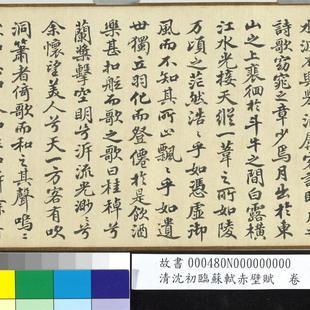 詩歌窈窕之章少焉月出於東
山之上裵徊於斗牛之間白露橫
江水光接天縱一葦之所如陵
万頃之茫然浩〻乎如憑虛御
風而不知其所止飄〻乎如遺
世獨立羽化而登僊於是飲酒
樂甚扣舷而歌之歌曰桂棹兮
蘭槳擊空明兮泝流光渺〻兮
余懷望美人兮天一方客有吹
洞簫者倚歌而和之其聲嗚〻
故書 000480N000000000
清沈初臨蘇軾赤壁賦 卷